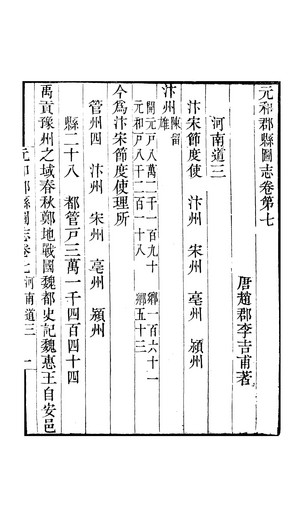 元和郡縣圖志卷第七
唐趙郡李吉甫著
河南道三
汴宋節度使 汴州 宋州 亳州 潁州
汴州 陳留
雄
開元戶八萬二千一百九十 鄉一百六十一
元和戶八千二百一十八 鄉五十三
今爲汴宋節度使理所
管州四 汴州 宋州 亳州 潁州
縣二十八 都管戶三萬一千四百四十四
禹貢豫州之域春秋鄭地戰國魏都史記魏惠王自安邑
元和郡縣圖志卷七 河南道三 一